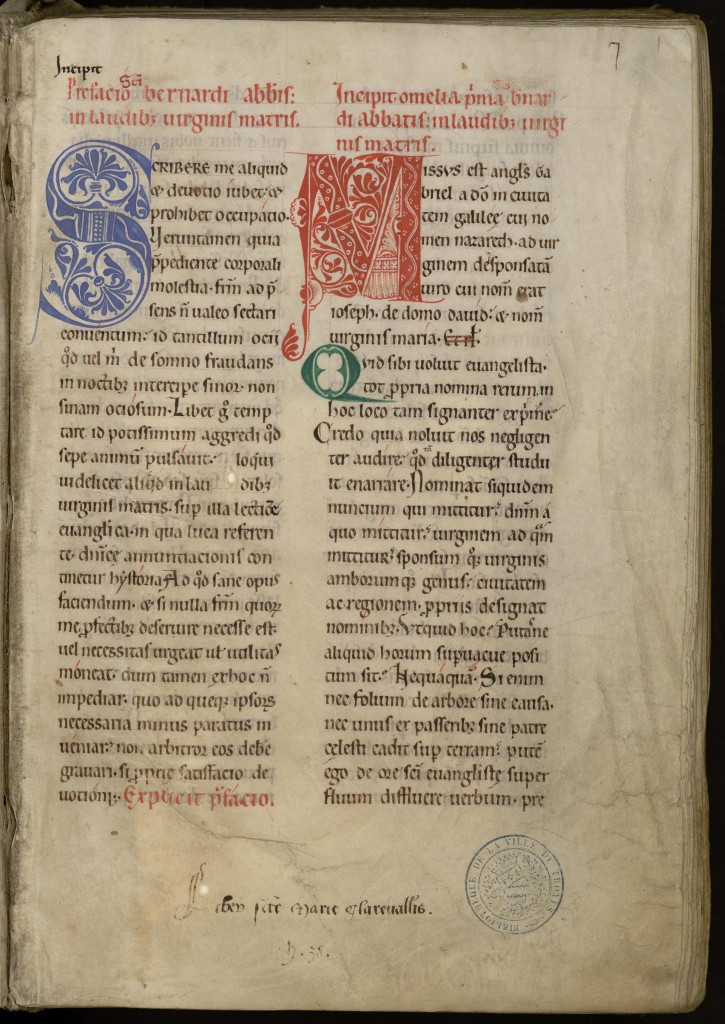 7
Incipit
Prefacio sci bernardi abbis:
in laudibꝫ virginis matris.
SCRIBERE me aliquid
& deuotio iubet: &
prohibet occupatio.
Ueruntamen quia
p̄pediente corporali
molestia. frm̄ ad p̄
sens n̄ ualeo sectari
conuentum: id tantillum ocii
qd̄ uel m̄ de somno fraudans
in noctibꝫ intercipe sinor. non
sinam ociosum. Libet g̊ temp
tare id potissimum aggredi qd̄
sepe animū pulsauit. loqui
uidelicet aliqid in lau dibꝫ
uirginis matris. sup illa lectiōe
euanglica. in qua luca referen
te. dn̄ice annuntiacionis con
tinetur hystoria. Ad qd̄ sane opus
faciendum. & si nulla frm̄ quoꝝ
me pfectibꝫ deseruire necesse est.
uel necessitas urgeat ul̄ utilitas
moneat. dum tamen ex hoc n̄
impediar. quo ad queq; ipsoꝝ
necessaria minus paratus in
ueniar. non arbitror eos debe
grauari. si pprie satisfacio de
uotioni. Explicit p̄facio.
Incipit omelia p̄ma sci bn̄ar
di abbatis: in laudibꝫ uirgi
nis matris.
MISSUS est angls̄ Ga
briel a dō in ciuita
tem galilee cui no
men nazareth. ad uir
ginem desponsatā
uiro cui nom̄ erat
ioseph. de domo dauid: & nom̄
uirginis maria.
Quid sibi uoluit euangelista.
tot ppria nomina rerum. in
hoc loco tam signanter exp̄me
Credo quia noluit nos negligen
ter audire. qd̄ diligenter studu
it enarrare. Nominat siquidem
nuncium qui mittitur. dnm̄ a
quo mittitur. uirginem ad quā
mittitur. sponsum q; uirginis
amborumq; genus. ciuitatem
ac regionem. ppriis designat
nominibꝫ. Vt quid hoc? Putasne
aliquid horum supuacue posi
tum sit? Nequaquā. Si enim
nec folium de arbore sine causa.
nec unus ex passeribꝫ sine patre
celesti cadit sup terram: putē
ego de ore sci euangliste super
fluum diffluere uerbum. pre
Liber scte Marie Clareuallis.
BIBLIOTHEQUE DE LA VILLE DE TROYES